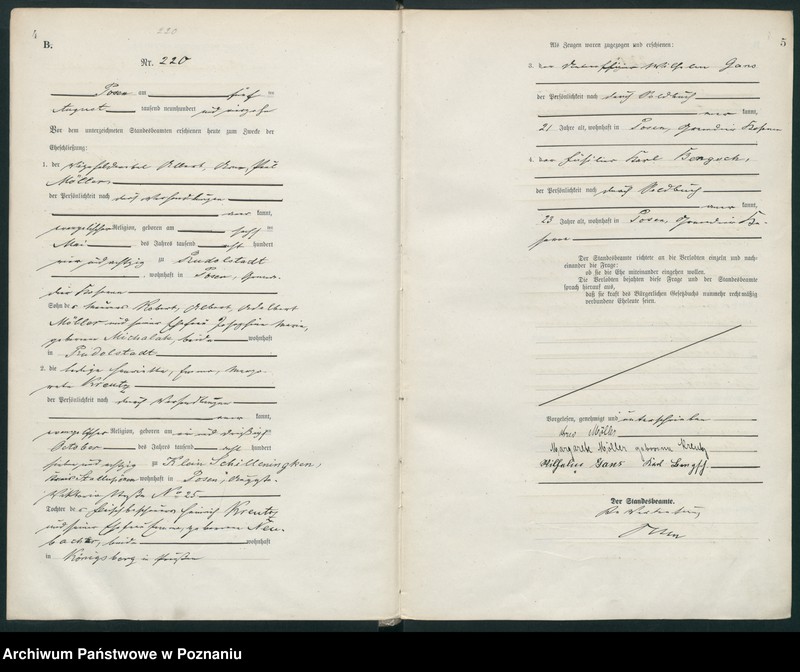 4
220
B.
Nr. 220
Posen am fünf ten
August tausend neunhundert und vierzehn
Vor dem unterzeichneten Standesbeamten erschienen heute zum Zwecke der
Eheschließung:
1. der Vizefeldwebel Albert, Arno, Paul
Möller
der Persönlichkeit nach durch Verhandlungen
kannt,
evangelischer Religion, geboren am
Mai des Jahres tausend acht hundert
vier und achtzig zu Rudolstadt
, wohnhaft in Posen, Grenadier
Sohn des Robert, Albert, Adalbert
Möller und seiner Ehefrau Josephine Marie,
geborenen Michalak, beide wohnhaft
in Rudolstadt
2. die ledige Henriette, Emma, Marga-
rete Kreutz
der Persönlichkeit nach durch Verhandlungen
kannt,
evangelischer Religion, geboren am ein und dreißigsten
October des Jahres tausend acht hundert
sieben und achtzig zu Klein Schilleningken,
wohnhaft in Posen,
Viktoria Straße No 25
Tochter des Heinrich Kreutz
und seiner Ehefrau geborenen Neu-
bacher, beide wohnhaft
in Königsberg in Preußen
5
Als Zeugen waren zugezogen und erschienen:
3. der Unteroffizier Wilhelm Gans
der Persönlichkeit nach durch Soldbuch
kannt,
21 Jahre alt, wohnhaft in Posen, Grenadier Kaserne
4. der Füsilier Karl Bengsch,
der Persönlichkeit nach durch Soldbuch
kannt,
23 Jahre alt, wohnhaft in Posen, Grenadier Ka-
serne
Der Standesbeamte richtete an die Verlobten einzeln und nach-
einander die Frage:
ob sie die Ehe miteinander eingehen wollen.
Die Verlobten bejahten diese Frage und der Standesbeamte
sprach hierauf aus,
daß sie kraft des Bürgerlichen Gesetzbuchs nunmehr rechtmäßig
verbundene Eheleute seien.
Vorgelesen, genehmigt und unterschrieben
Arno Möller
Margarete Möller geborene Kreutz
Wilhelm Gans Karl Bengsch
Der Standesbeamte.
In Vertretung
Archiwum Państwowe w Poznaniu